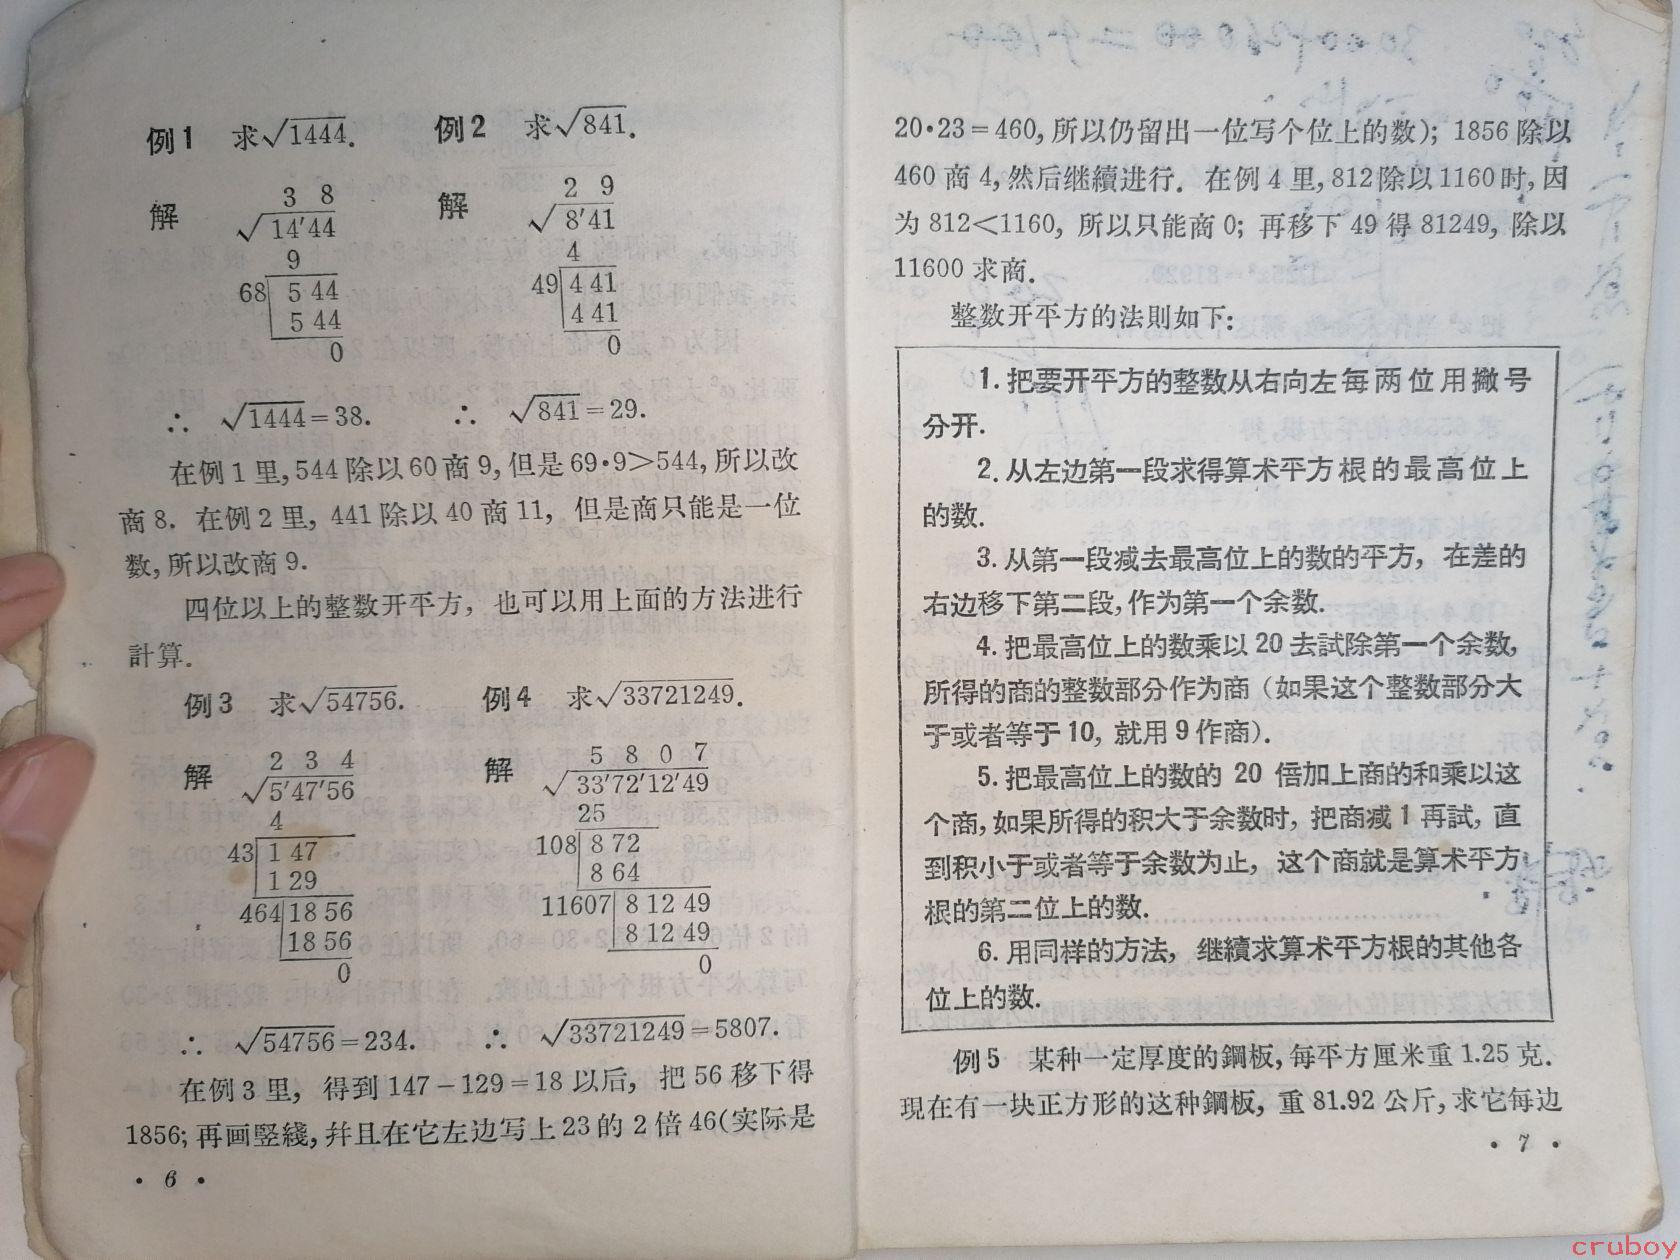 例1 求√1444. 例2 求√841.
解
3 8
√14′44
9
68 5 44
5 44
0
解
2 9
√8′41
4
49 4 41
4 41
0
∴ √1444=38. ∴ √841=29.
在例1里,544除以60商9,但是69·9>544,所以改
商8. 在例2里, 441除以40商11, 但是商只能是一位
数,所以改商9.
四位以上的整数开平方, 也可以用上面的方法进行
計算.
例3 求√54756. 例4 求√33721249.
解
2 3 4
√5′47′56
4
43 1 47
1 29
464 18 56
18 56
0
解
5 8 0 7
√33′72′12′49
25
108 8 72
8 64
11607 8 12 49
8 12 49
0
∴ √54756=234. ∴ √33721249=5807.
在例3里, 得到147-129=18以后, 把56移下得
1856; 再画竪綫,幷且在它左边写上23的2倍46(实际是
· 6 ·
20·23=460,所以仍留出一位写个位上的数); 1856除以
460商4,然后继續进行. 在例4里,812除以1160时,因
为812<1160, 所以只能商0; 再移下49得81249, 除以
11600求商.
整数开平方的法則如下:
1. 把要开平方的整数从右向左每两位用撇号
分开.
2. 从左边第一段求得算术平方根的最高位上
的数.
3. 从第一段减去最高位上的数的平方, 在差的
右边移下第二段,作为第一个余数.
4. 把最高位上的数乘以20去試除第一个余数,
所得的商的整数部分作为商(如果这个整数部分大
于或者等于10, 就用9作商).
5. 把最高位上的数的20倍加上商的和乘以这
个商,如果所得的积大于余数时, 把商减1再試, 直
到积小于或者等于余数为止, 这个商就是算术平方
根的第二位上的数.
6. 用同样的方法, 继續求算术平方根的其他各
位上的数.
例5 某种一定厚度的鋼板,每平方厘米重1.25克.
現在有一块正方形的这种鋼板, 重81.92公斤,求它每边
· 7 ·
cruboy